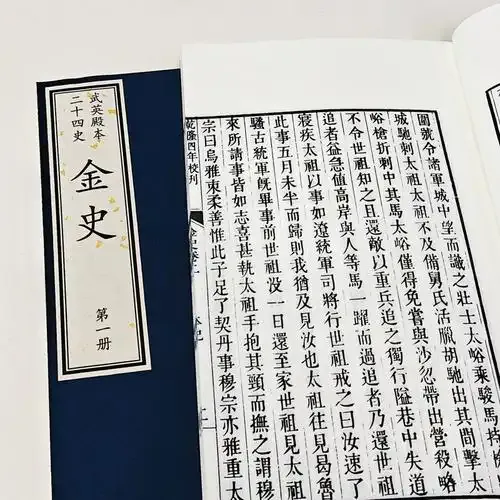 武英殿本
二十四史
金史
第一册
圍號令諸軍城中望而識之壯士太峪乘駿馬持
城馳刺太祖太祖不及備舅氏活臘胡馳出其間擊太
峪槍折刺中其馬太峪僅得免嘗與沙忽帶出營殺略
不令世祖知之且還敵以重兵追之獨行隘巷中失道
追者益急值高岸與人等馬一躍而過追者乃還世祖
寢疾太祖以事如遼統軍司將行世祖戒之曰汝速了
此事五月未半而歸則我猶及見汝也太祖往見曷魯
騷古統軍既畢事前世祖沒一日還至家世祖見太祖
來所請事皆如志喜甚執太祖手抱其頸而撫之謂穆
宗曰烏雅束柔善惟此子足了契丹事穆宗亦雅重太
乾隆四年校刊